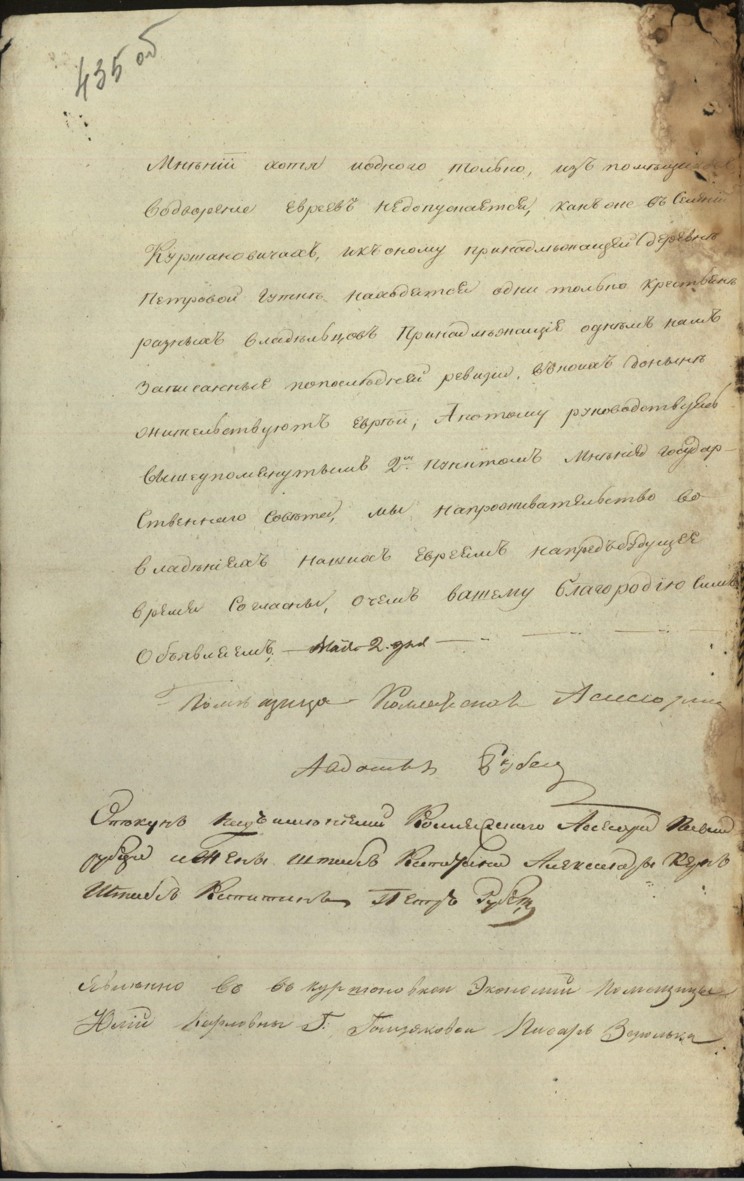 435 об
Мнѣній хотя иодного только, изъ помѣщиковъ
Водвореніе Евреевъ недопускается, какъ оне въ Селѣніи
Куршановичахъ, икъоному принадлѣжащей деревнѣ
Петровой Гутнѣ находятся одни только крестьяне
разныхъ владѣльцовъ Принадлѣжащіе однѣмъ намъ
записанные попослѣдней ревизіи, въкоихъ донынѣ
жительствуютъ Евреи, Апотому руководствуясь
вышеупомянутымъ 2мъ пунктомъ Мнѣнія Государ-
ственнаго Совѣта, мы напроживательство во
владѣніяхъ нашихъ Евреямъ напредъбудущее
время Согласны, очемъ вашему благородію Симъ
Объявляемъ, Маія 2. дня
Помѣщица Коллежская Асессорша
Авдотья Рубец
Опекунъ надъ имѣніемъ Коллежскаго Асесора
Рубца и Штабъ Капитана Александра
Штабсъ Капитанъ Петръ Рубец
Явленно во Экономіи Помѣщицы
Юліи Карловны Г. Писарь